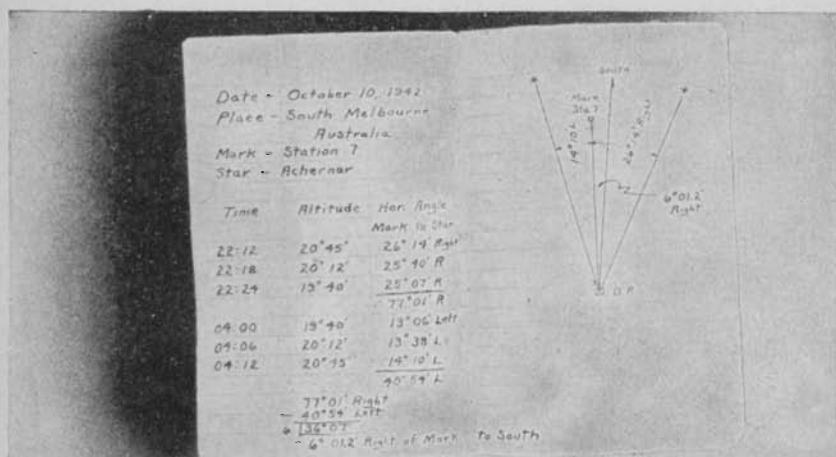 Date - October 10, 1942
Place - South Melbourne
Australia
Mark - Station 7
Star - Achernar
Time Altitude Hor. Angle
Mark to Star
22:12 20°45' 26°14' Right
22:18 20°12' 25°40' R
22:24 19°40' 25°07' R
77°01' R
04:00 19°40' 13°06' Left
04:06 20°12' 13°38' L
04:12 20°45' 14°10' L
40°54' L
77°01' Right
- 40°54' Left
6 36°07'
6° 01.2' Right of Mark to South
South
Mark
Sta 7
14°10' L
26°14' Right
6°01.2'
Right
O.P.